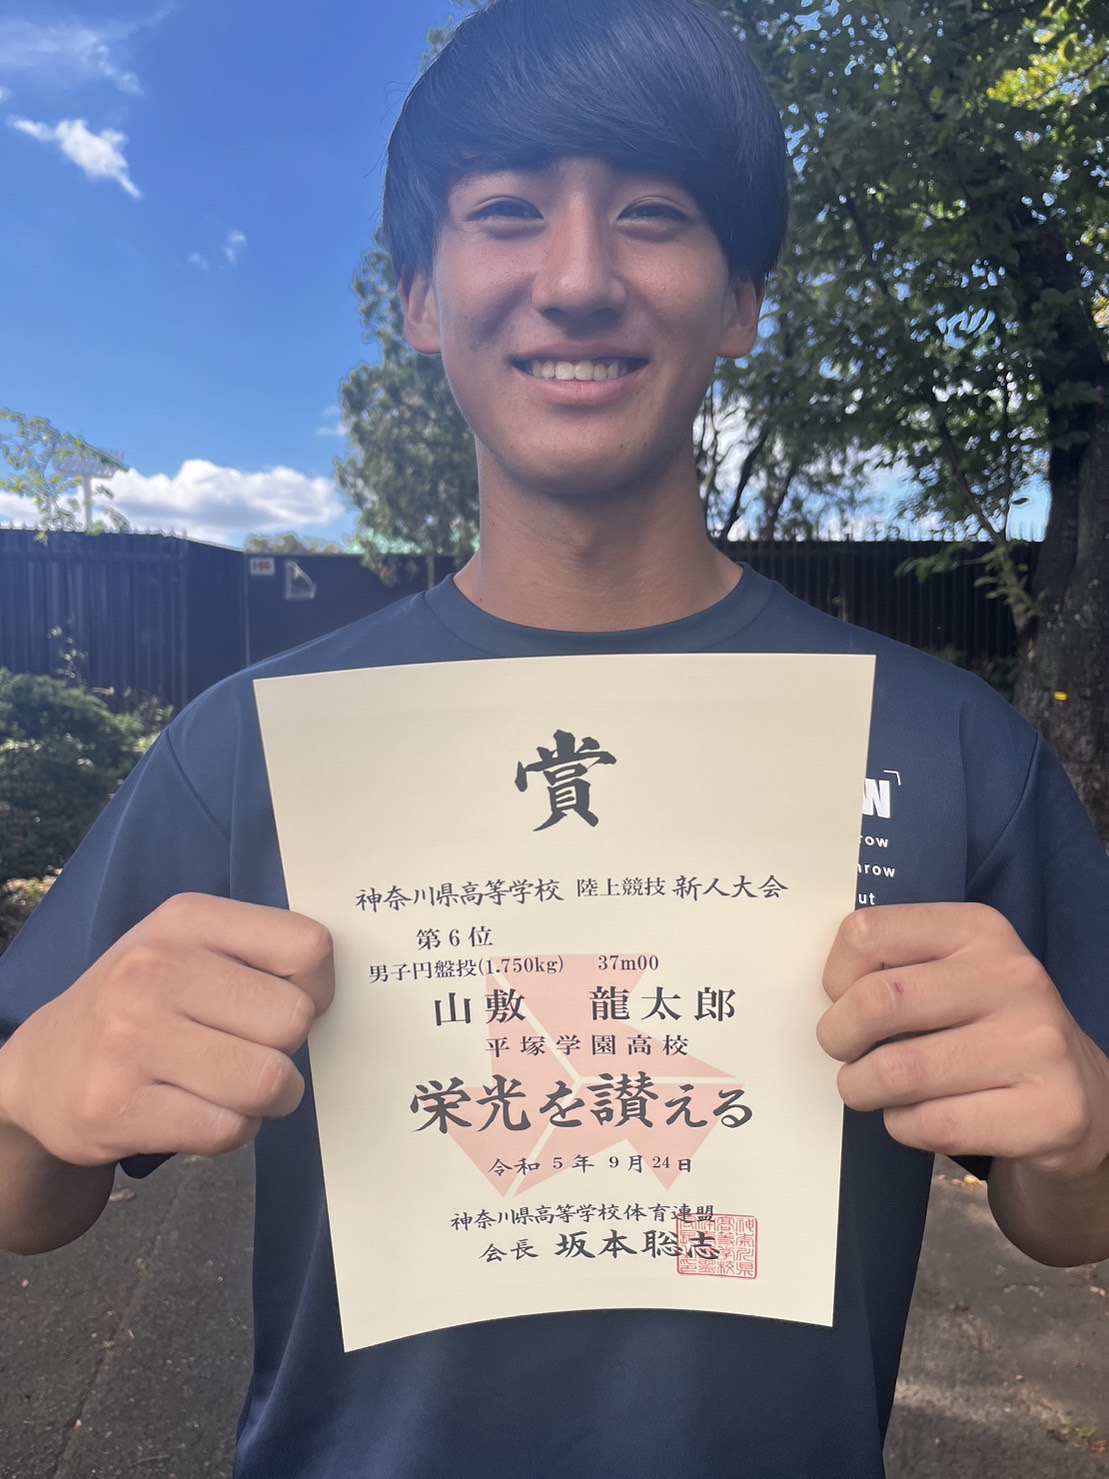 賞
神奈川県高等学校 陸上競技 新人大会
第6位
男子円盤投(1.750kg) 37m00
山敷 龍太郎
平塚学園高校
栄光を讃える
令和5年9月24日
神奈川県高等学校体育連盟
会長 坂本聡志
W
row
hrow
ut